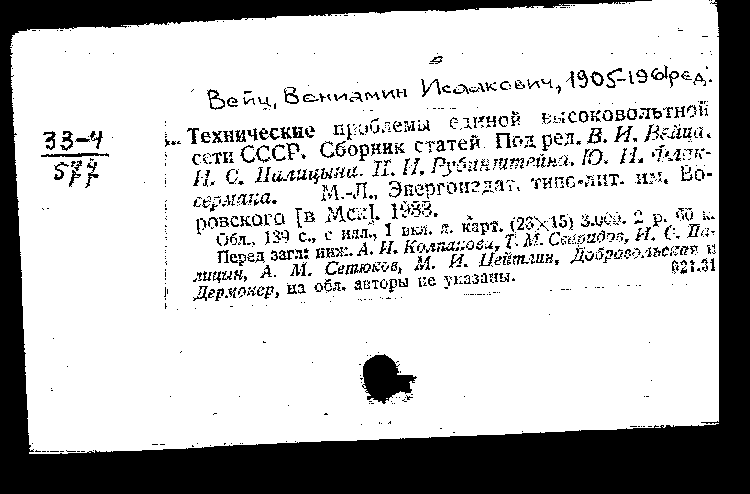 Вейц, Вениамин Исаакович, 1905-1961 ред.
33-4
577
Технические проблемы единой высоковольтной
сети СССР. Сборник статей. Под ред. В. И. Вейца,
И. С. Палицына. И. И. Рубинштейна. Ю. И. Флак-
сермана. М.-Л., Энергоиздат, типо-лит. им. Во-
ровского [в Мск].
Обл., 139 с., с илл., 1 вкл. л. карт. (23×15) 3.000. 2 р. 60 к.
Перед загл: инж. А. И. Колпакова, Т. М. Свиридов, И. С. Па-
лицын, А. М. Сетюков, М. И. Цейтлин, Добровольская и
Дермокер, на обл. авторы не указаны.
621.31